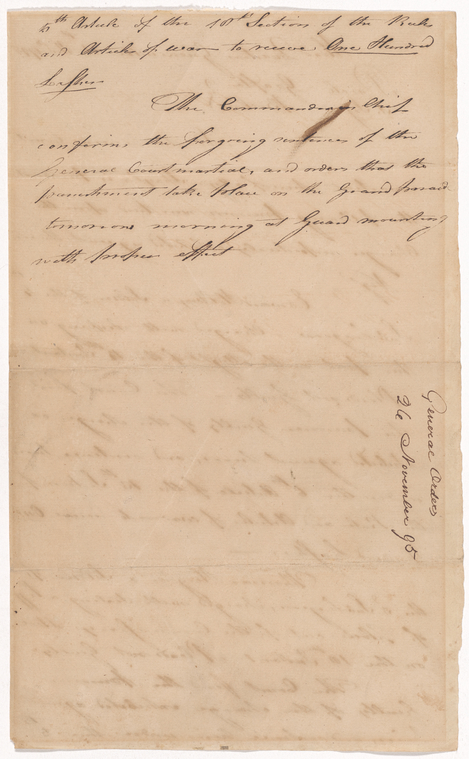 5th Article of the 18th Section of the Rules
and Articles of war to receive One Hundred
Lashes
The Commander in Chief
confirms the forgoing sentences of the
General Court martial, and orders that the
punishment take place on the Grand parade
tomorrow morning at Guard mounting
with proper effect
General Orders
26 November 95